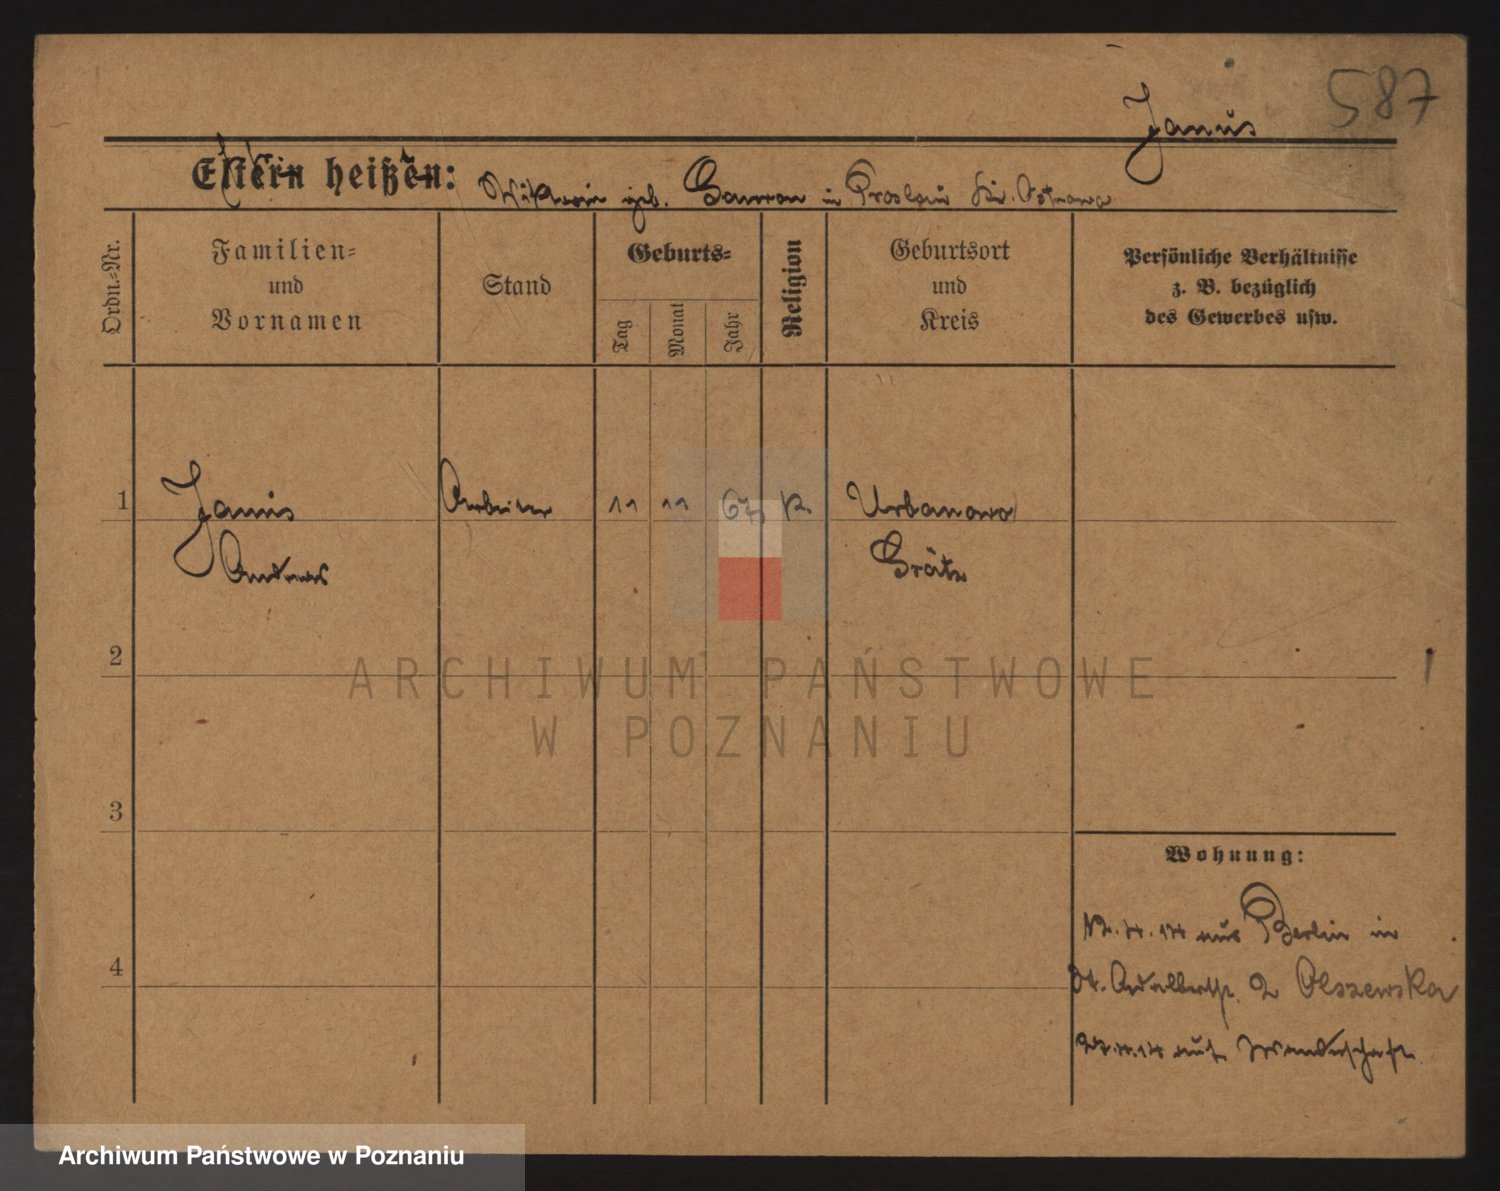 587
Janus
Eltern heißen: Viktoria geb. Gawron in Kr. Ostrowo
Ordn.-Nr.
Familien-
und
Vornamen
Stand
Geburts-
Tag
Monat
Jahr
Religion
Geburtsort
und
Kreis
Persönliche Verhältnisse
z. B. bezüglich
des Gewerbes usw.
1
Janus
Andreas
Arbeiter
11
11
67
K.
Urbanowo
Grätz
2
ARCHIWUM PAŃSTWOWE
W POZNANIU
3
Wohnung:
aus Berlin in
St. Adalbertstr. 2 Olszewska
4
auf Wanderschaft
Archiwum Państwowe w Poznaniu